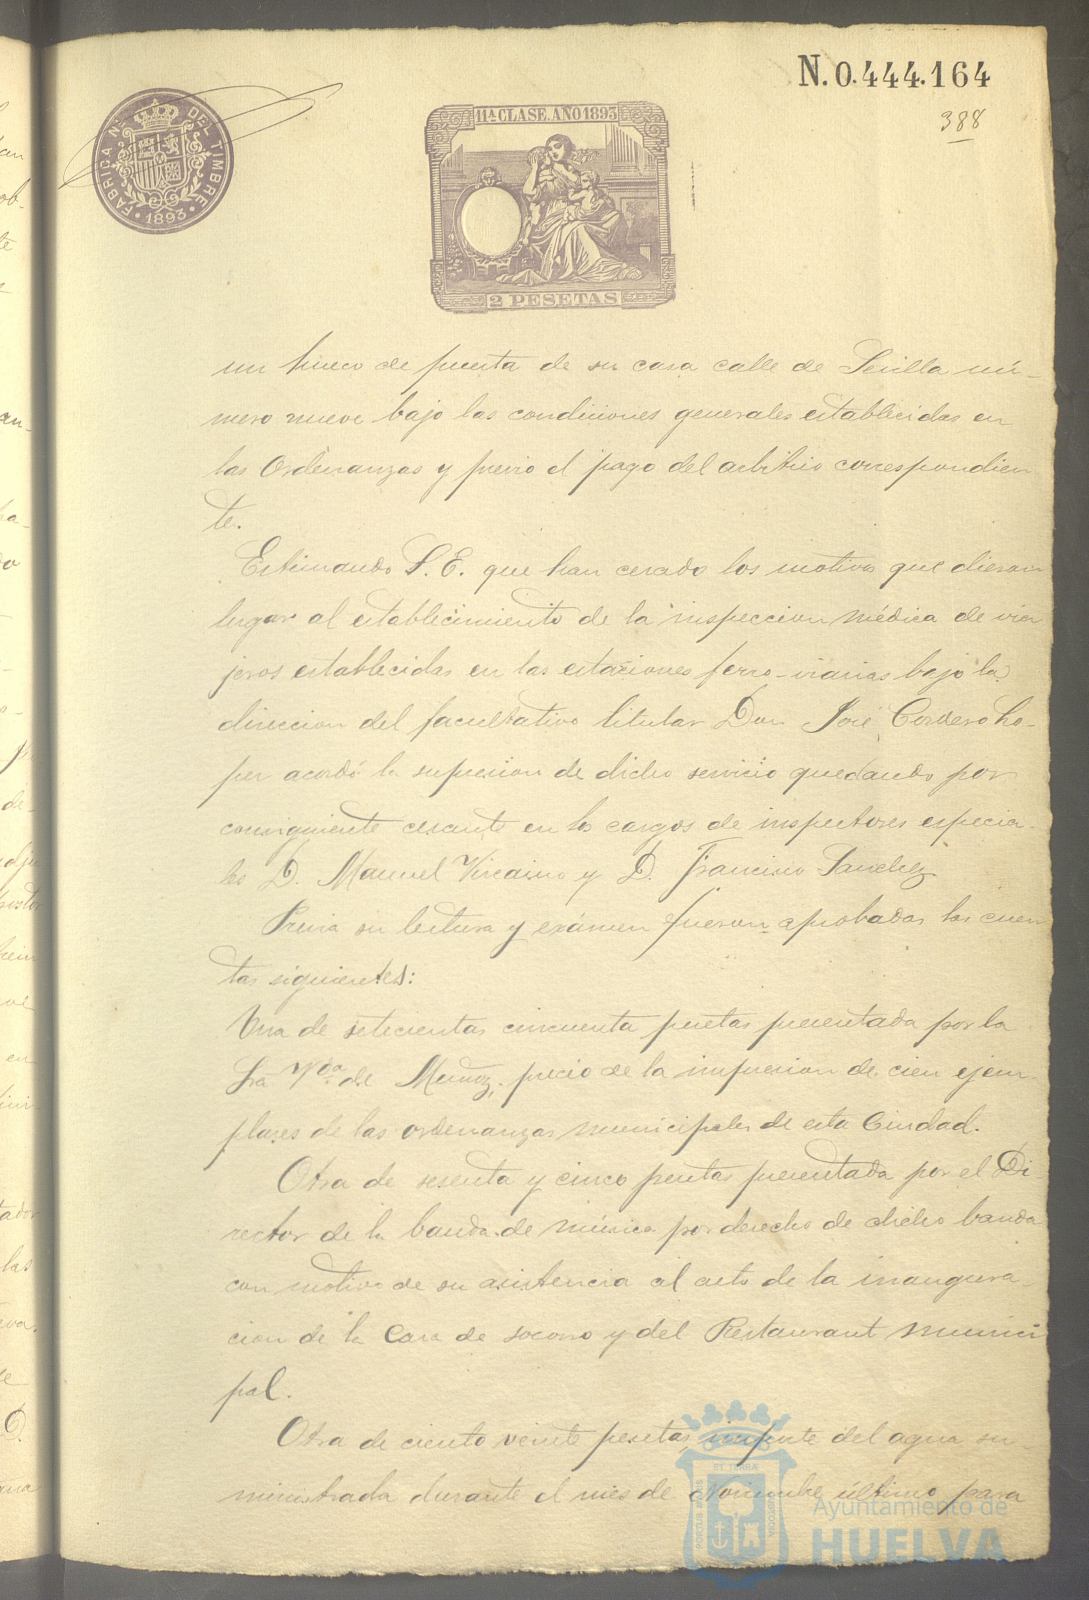 N. 0.444.164
388
FABRICA Nal DEL TIMBRE
1893
11ª CLASE. AÑO 1893
2 PESETAS
un hueco de puerta de su casa calle de Sevilla nú-
mero nueve bajo las condiciones generales establecidas en
las Ordenanzas y previo el pago del arbitrio correspondien
te.
Estimando S. E. que han cesado los motivos que dieron
lugar al establecimiento de la inspeccion médica de via
jeros establecidas en las estaciones ferro-viarias bajo la
direccion del facultativo titular Don José Cordero Lo-
pez acordó la supresion de dicho servicio quedando por
consiguiente cesante en los cargos de inspectores especia-
les D. Manuel Vizcaino y D. Francisco Sanchez
Previa su lectura y exámen fueron aprobadas las cuen
tas siguientes:
Una de setecientas cincuenta pesetas presentada por la
Sra Vda de Muñoz, precio de la impresion de cien ejem-
plares de las ordenanzas municipales de esta Ciudad.
Otra de sesenta y cinco pesetas presentada por el Di-
rector de la banda de música por derecho de dicha banda
con motivo de su asistencia al acto de la inaugura-
cion de la Casa de socorro y del Restaurant munici
pal.
Otra de ciento veinte pesetas, importe del agua su-
ministrada durante el mes de Noviembre último para
Ayuntamiento de
HUELVA